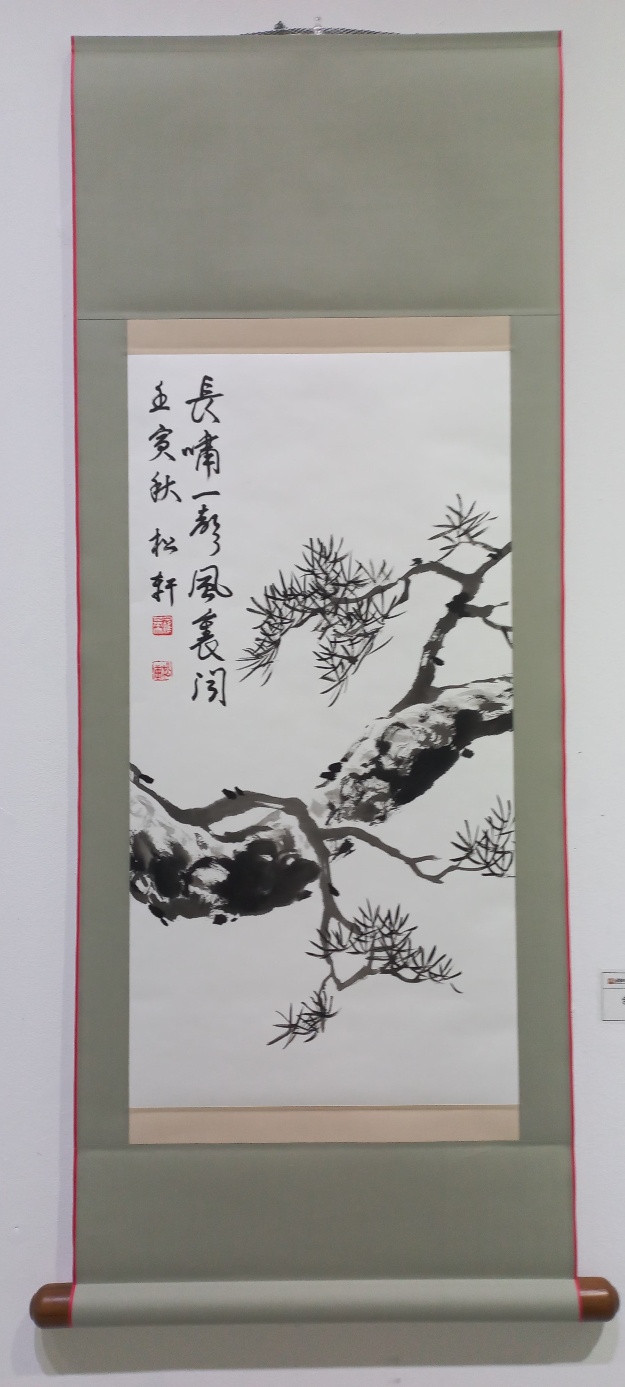 長嘯一聲風裏聞
壬寅秋 松軒